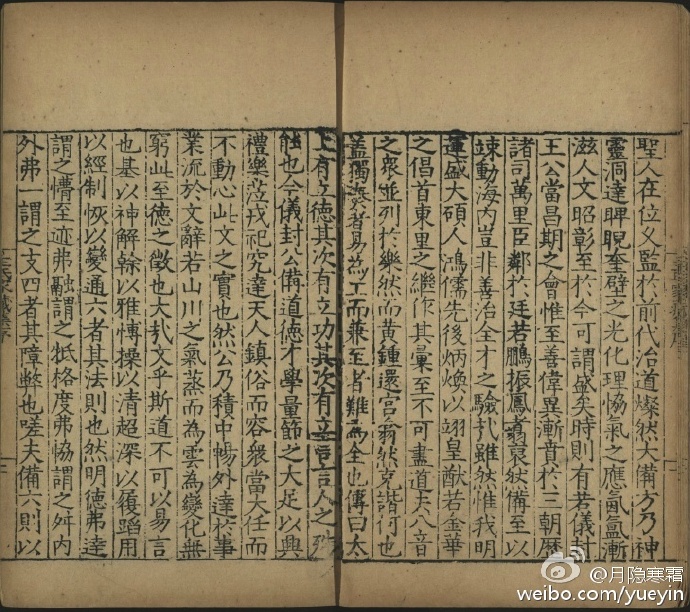 聖人在位又監於前代治道燦然大備方乃神
靈洞達睥睨奎壁之光化理恊氣之應氤氳漸
滋人文昭彰至於今可謂盛矣時則有若儀封
王公當昌期之會惟至善偉異漸音於三朝歷
諸司萬里臣鄰於廷若鵬振鳳翥裒狀備至以
竦動海內豈非善治全才之驗扎雖然惟我明
運盛大碩人鴻儒先後炳煥以翊皇猷若金華
之倡首東里之繼作其彙至不可盡道夫八音
之衆並列於樂然而黃鍾還宮翕然克諧何也
蓋獨奏者易為工而兼至者難為全也傳曰太
上有立德其次有立功其次有立言言人之殊
能也今儀封公備道德才學量飾之大足以興
禮樂蒞戎祀究達天人鎮俗而容衆當大任而
不動心此文之實也然公乃積中暢外達於事
業流於文辭若山川之氣蒸而為雲為變化無
窮此至德之徵也大㢤文乎斯道不可以易言
也基以神解幹以雅慱操以清超深以履蹈用
以經制恢以變通六者其法則也然明德弗達
謂之懵至迹弗融謂之牴格度弗恊謂之舛內
外弗一謂之支四者其障蔽也嗟夫備六則以
@月隐寒霜
weibo.com/yueyin